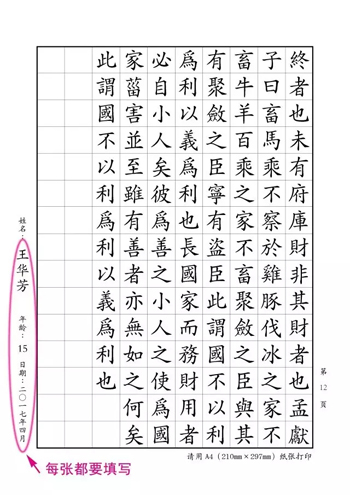 終者也未有府庫財非其財者也孟獻
子曰畜馬乘不察於雞豚伐冰之家不
畜牛羊百乘之家不畜聚斂之臣與其
有聚斂之臣寧有盜臣此謂國不以利
爲利以義爲利也長國家而務財用者
必自小人矣彼爲善之小人之使爲國
家菑害並至雖有善者亦無如之何矣
此謂國不以利爲利以義爲利也
第12頁
姓名：王华芳 年龄：15 日期：二〇一七年四月
请用A4（210mm×297mm）纸张打印
每张都要填写